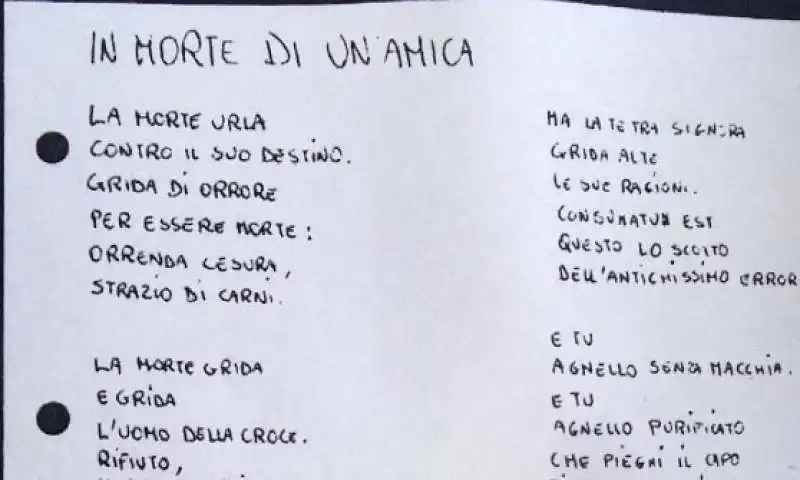 IN MORTE DI UN'AMICA
LA MORTE URLA
CONTRO IL SUO DESTINO.
GRIDA DI ORRORE
PER ESSERE MORTE:
ORRENDA CESURA,
STRAZIO DI CARNI.
LA MORTE GRIDA
E GRIDA
L'UOMO DELLA CROCE.
RIFIUTO,
MA LA TETRA SIGNORA
GRIDA ALTE
LE SUE RAGIONI.
CONSUMATUM EST
QUESTO LO SCOTTO
DELL'ANTICHISSIMO ERROR
E TU
AGNELLO SENZA MACCHIA.
E TU
AGNELLO PURIFICATO
CHE PIEGHI IL CAPO